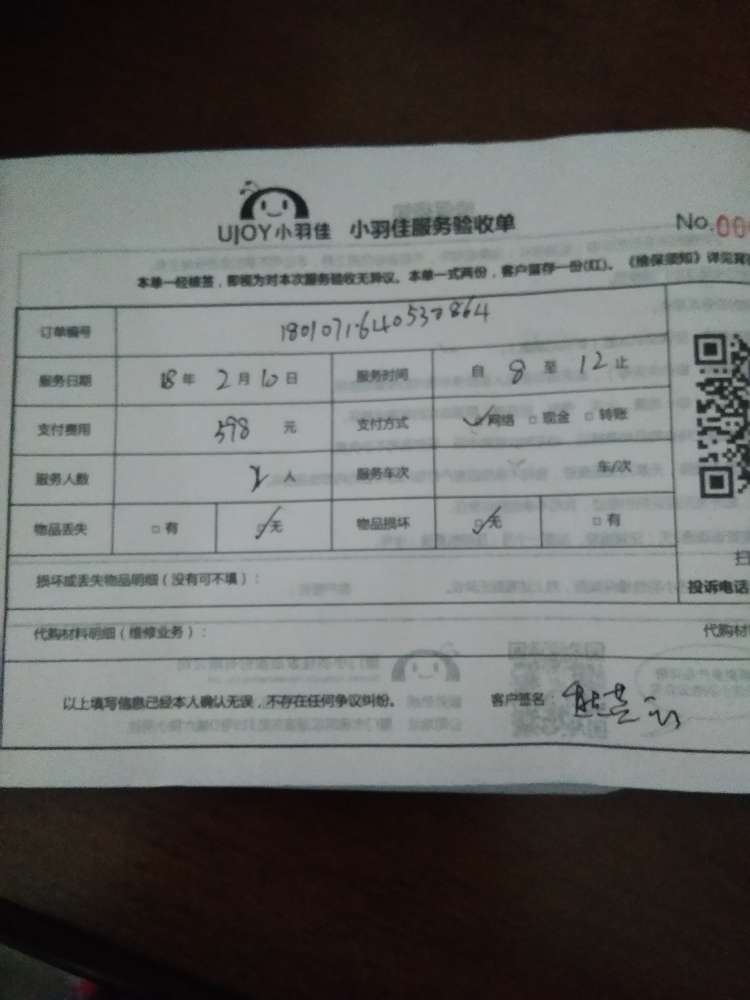 UJOY小羽佳 小羽佳服务验收单 No.00
本单一经签签，即视为对本次服务验收无异议。本单一式两份，客户留存一份(红)。《维保须知》详见背
订单编号
服务日期 18年 2月10日 服务时间 自 8 至 12止
支付费用 598 元 支付方式 ✓网络 □现金 □转账
服务人数 2人 服务车次 车/次
物品丢失 □有 ☑无 物品损坏 ☑无 □有
损坏或丢失物品明细（没有可不填）： 扫
投诉电话
代购材料明细（维修业务）： 代购材
以上填写信息已经本人确认无误，不存在任何争议纠纷。 客户签名：